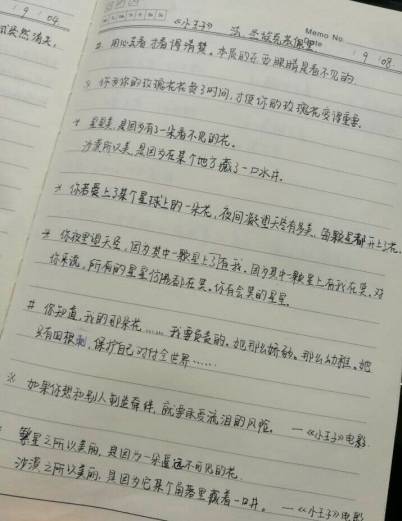 19 04
Memo No.
Date 19 08
《小王子》 法.圣埃克苏佩里
突然消失,
# 用心去看才看得清楚。本质的东西眼睛是看不见的.
你为你的玫瑰花花费了时间,才使你的玫瑰花变得重要.
星星美,是因为有了一朵看不见的花。
沙漠所以美,是因为在某个地方藏了一口水井。
你若爱上了某个星球上的一朵花,夜间凝望天空有多美,每颗星都开上了花.
你夜里望天空,因为其中一颗星上有我,因为其中一颗星上有我在笑,对
你来说,所有的星星仿佛都在笑。你有会笑的星星.
# 你知道,我的那朵花……我要负责的。她那么娇弱。那么幼稚。她
只有四根刺,保护自己对付全世界……
※ 如果你想和别人制造羁绊,就要承受流泪的风险。 —《小王子》电影
繁星之所以美丽,是因为一朵遥远不可见的花.
沙漠之所以美丽,是因为它某个角落里藏着一口井。 —《小王子》电影